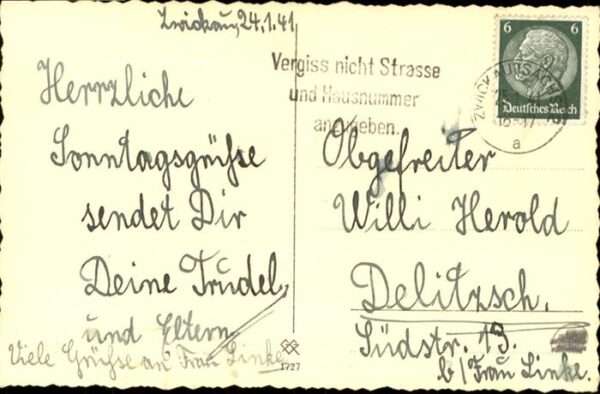 Zwickau, 24.1.41.
Herrzliche
Sonntagsgrüße
sendet Dir
Deine Trudel,
und Eltern
Viele Grüße an Frau Linke
Vergiss nicht Strasse
und Hausnummer
anzugeben.
6 6
Deutsches Reich
ZWICKAU (SACHS)
a
Obgefreiter
Willi Herold
Delitzsch.
Südstr. 13.
b/Frau Linke.
1727